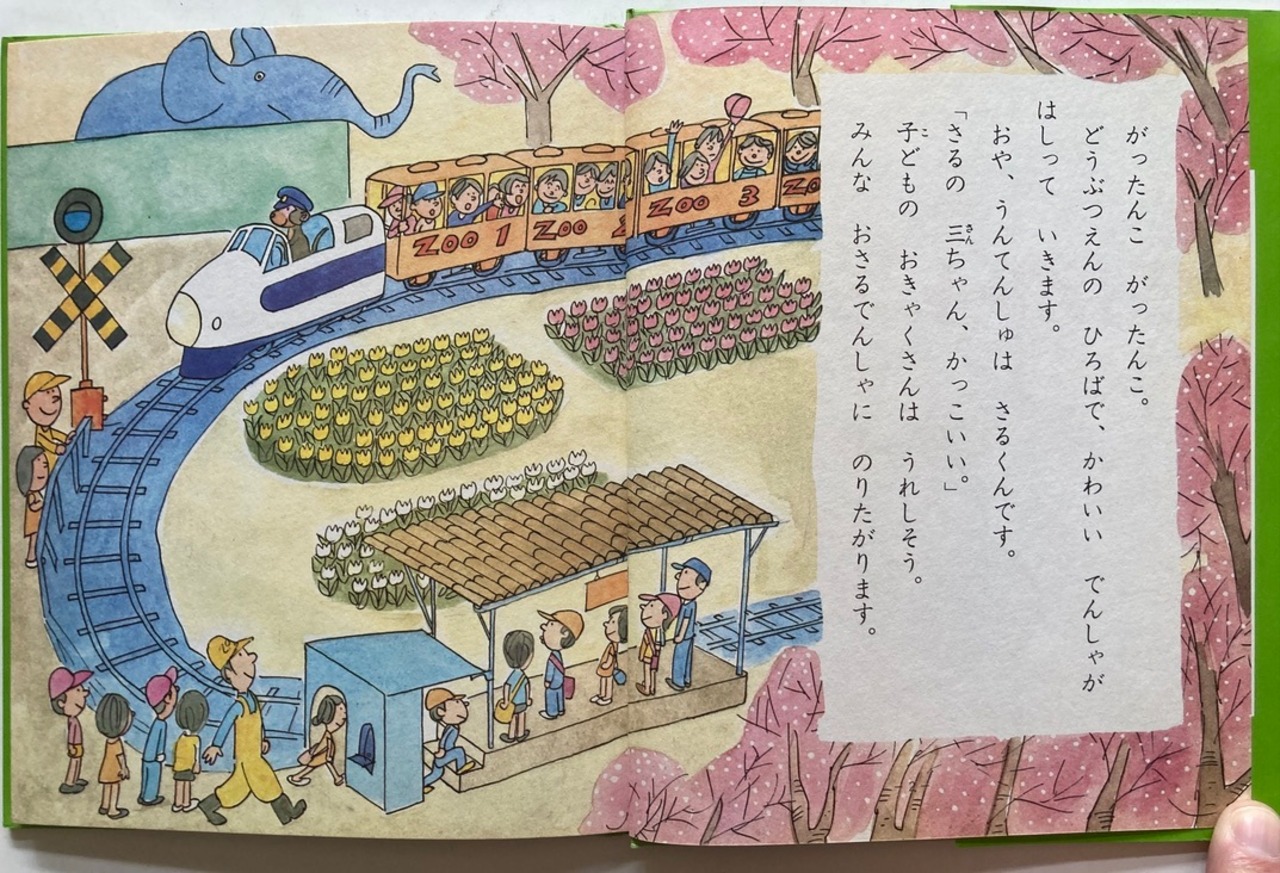 がったんこ　がったんこ。
どうぶつえんの　ひろばで、かわいい　でんしゃが
はしって　いきます。
おや、うんてんしゅは　さるくんです。
「さるの　三ちゃん、かっこいい。」
子どもの　おきゃくさんは　うれしそう。
みんな　おさるでんしゃに　のりたがります。
ZOO 1
ZOO 2
ZOO 3
ZO